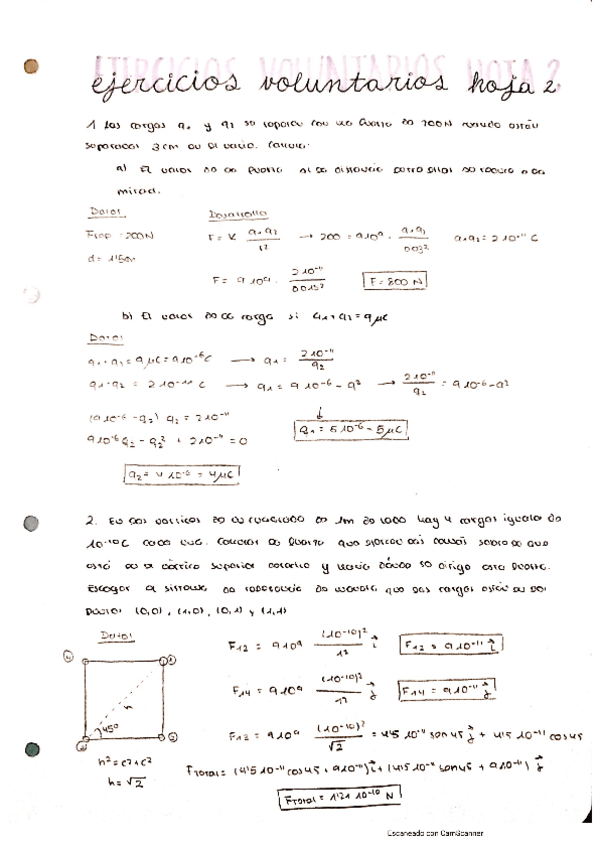 ejercicios voluntarios hoja 2
1. Las cargas q1 y q2 se repelen con una fuerza de 200N cuando están
separadas 3cm en el vacío. Calcula:
a) El valor de la fuerza si la distancia entre ellas se reduce a la
mitad.
Datos Desarrollo
Frep = 200N F = K q1·q2/r² → 200 = 9·10⁹ · q1·q2/0'03² q1·q2 = 2·10⁻¹¹ C
d = 1'5cm
F = 9·10⁹ · 2·10⁻¹¹/0'015² F = 800 N
b) El valor de la carga si q1+q2 = 9μC
Datos
q1+q2 = 9μC = 9·10⁻⁶ C → q1 = 2·10⁻¹¹/q2
q1·q2 = 2·10⁻¹¹ C → q1 = 9·10⁻⁶ - q2 → 2·10⁻¹¹/q2 = 9·10⁻⁶ - q2
(9·10⁻⁶ - q2) q2 = 2·10⁻¹¹ q1 = 5·10⁻⁶ = 5μC
9·10⁻⁶q2 - q2² + 2·10⁻¹¹ = 0
q2 = 4·10⁻⁶ = 4μC
2. En los vértices de un cuadrado de 1m de lado hay 4 cargas iguales de
10⁻¹⁰C cada una. Calcular la fuerza que ejercen las demás sobre la que
está en el vértice superior derecho y hacia dónde se dirige esta fuerza.
Escoger el sistema de referencia de manera que las cargas estén en los
puntos (0,0), (1,0), (0,1) y (1,1)
Datos F12 = 9·10⁹ (10⁻¹⁰)²/1² i F12 = 9·10⁻¹¹ i
F14 = 9·10⁹ (10⁻¹⁰)²/1² j F14 = 9·10⁻¹¹ j
45º F13 = 9·10⁹ (10⁻¹⁰)²/√2 = 4'5·10⁻¹¹ sen45 j + 4'5·10⁻¹¹ cos45
h² = c²+c²
h = √2 Ftotal = (4'5·10⁻¹¹ cos45 + 9·10⁻¹¹) i + (4'5·10⁻¹¹ sen45 + 9·10⁻¹¹) j
Ftotal = 1'21·10⁻¹⁰ N
Escaneado con CamScanner